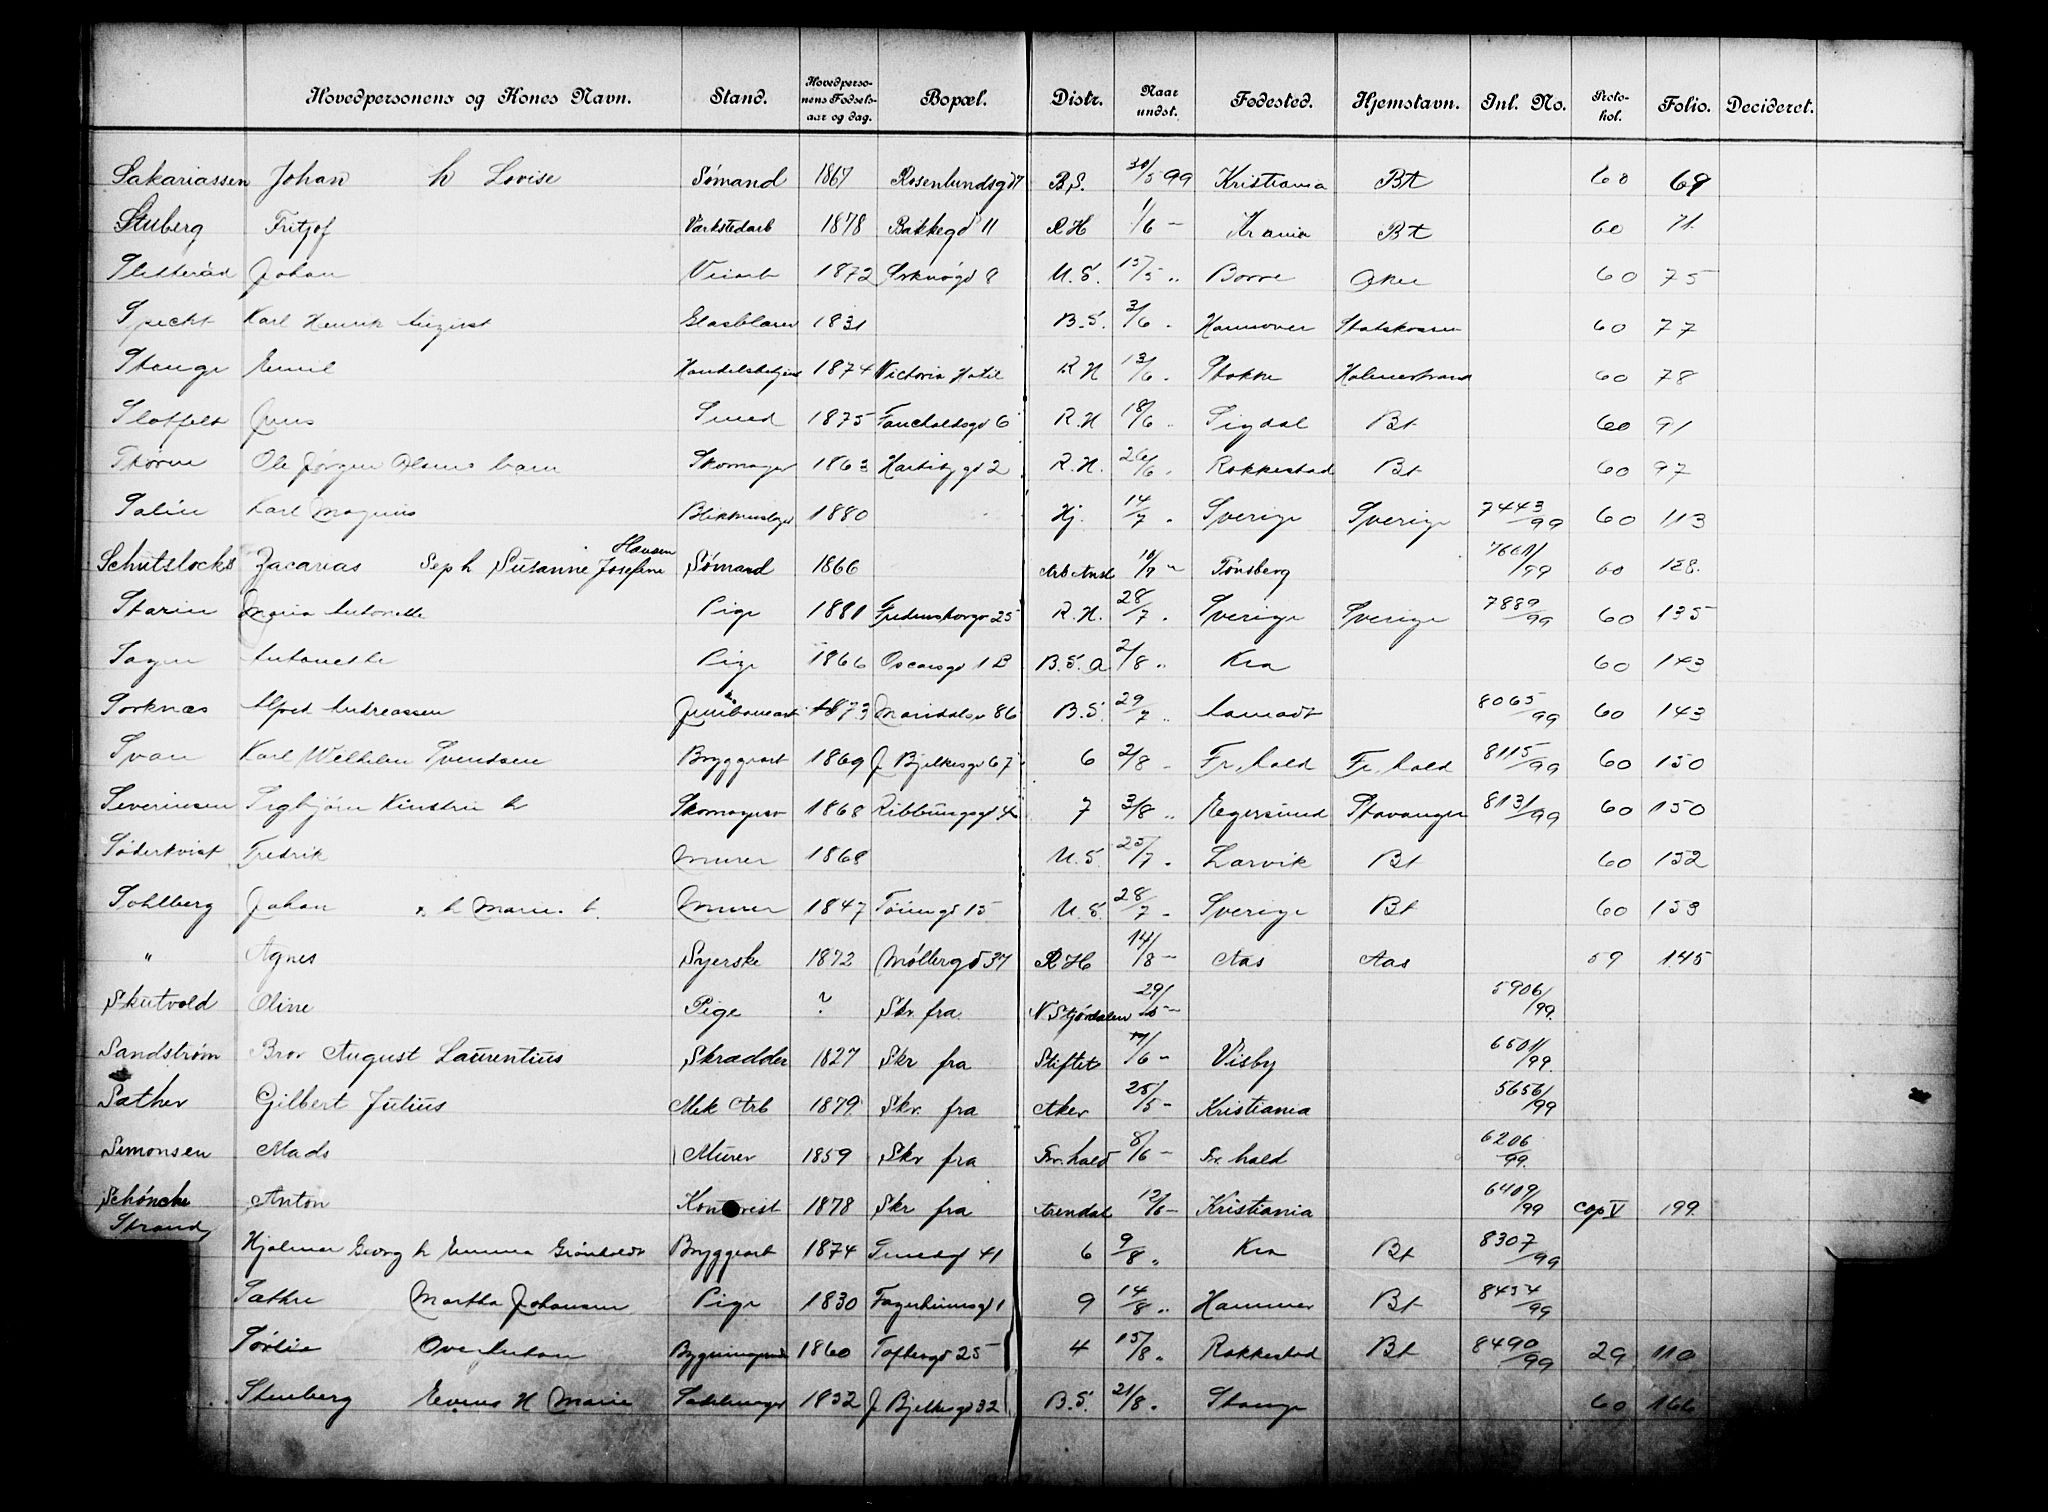 Hovedpersonens og Kones Navn. Stand. Hovedperso-nens Fødsels-aar og dag. Bopæl. Distr. Naar undst. Fødested. Hjemstavn. Inl. No. Proto-kol. Folio. Decideret.
Sakariassen Johan h Lovise Sømand 1867 Rosenlundsgd 7 B.S. 30/5 99 Kristiania Bt 60 69
Stuberg Fritjof Værkstedarb 1878 Bakkegd 11 RH 1/6 — Krania Bt 60 71
Johan 1872 8 U.S. 15/5 " Borre Aker 60 75
Specht Karl Henrik August Glasblaser 1831 B.S. 3/6 " Hannover Statskassen 60 77
Stange Emil 1874 Victoria Hotel R.H 13/6 " Stokke Holmestrand 60 78
Jens Smed 1875 6 R.H 18/6 " Sigdal Bt 60 91
Ole Jørgen Skomager 1863 2 R.H. 26/6 " Rakkestad Bt 60 97
Salin Karl Magnus 1880 Hj. 14/7 " Sverige Sverige 7443/99 60 113
Schutslocks Zacarias Sep h Susanne Josefine Hansen Sømand 1866 Arb Anst 10/7 — Tønsberg 7661/99 60 128.
Starin Maria Antonette Pige 1881 Fredensborgv 25 R.H. 28/7 " Sverige Sverige 7889/99 60 135
Antonette Pige 1866 Oscarsgd 1 B B.S. a 2/8 " Kra 60 143
Sorknæs Alfred Andreassen 1873 Maridalsv 86 B.S. 29/7 " 8065/99 60 143
Svan Karl Wilhelm Svendsen Bryggearb 1869 J Bjelkesgd 67 6 2/8 " Fr. hald Fr. hald 8115/99 60 150
Severinsen Sigbjørn Skomagersv 1868 4 7 3/8 " Egersund Stavanger 8131/99 60 150
Söderkvist Fredrik Murer 1868 U.S. 25/7 " Larvik Bt 60 152
Sohlberg Johan h Marie Murer 1847 Tøiengd 15 U.S. 28/7 " Sverige Bt 60 153
" Agnes Syerske 1872 Møllergd 37 RH 14/8 — Aas Aas 59 145
Skutvold Oline Pige ? Skr. fra N. Stjørdalen 29/5 — 5906/99.
Sandstrøm Bror August Laurentius Skrædder 1827 Skr fra Stiftet /6 — Visby 6501/99.
Sæther Gilbert Julius Mek Arb 1879 Skr. fra Aker 25/5 — Kristiania 5656/99
Simonsen Mads Murer 1859 Skr fra Fr. hald 8/6 — Fr. hald 6206/99.
Schöncke Anton 1878 Skr fra Arendal 12/6 — Kristiania 6409/99 Cop V 199.
Strand Hjalmar Georg h Emma Grönholdt Bryggearb 1874 41 6 9/8 " Kra Bt 8307/99
Sæthre Martha Johansen Pige 1830 Fagerheimsgd 1 9 14/8 " Hammer Bt 8434/99
Sørlie Ove Anton 1860 Toftesgd 25 4 15/8 " Rakkestad Bt 8490/99 29 110
Stenberg Evens H Marie Sadelmager 1832 J Bjelkesgd 32 B.S. 21/8 " Stange 60 166